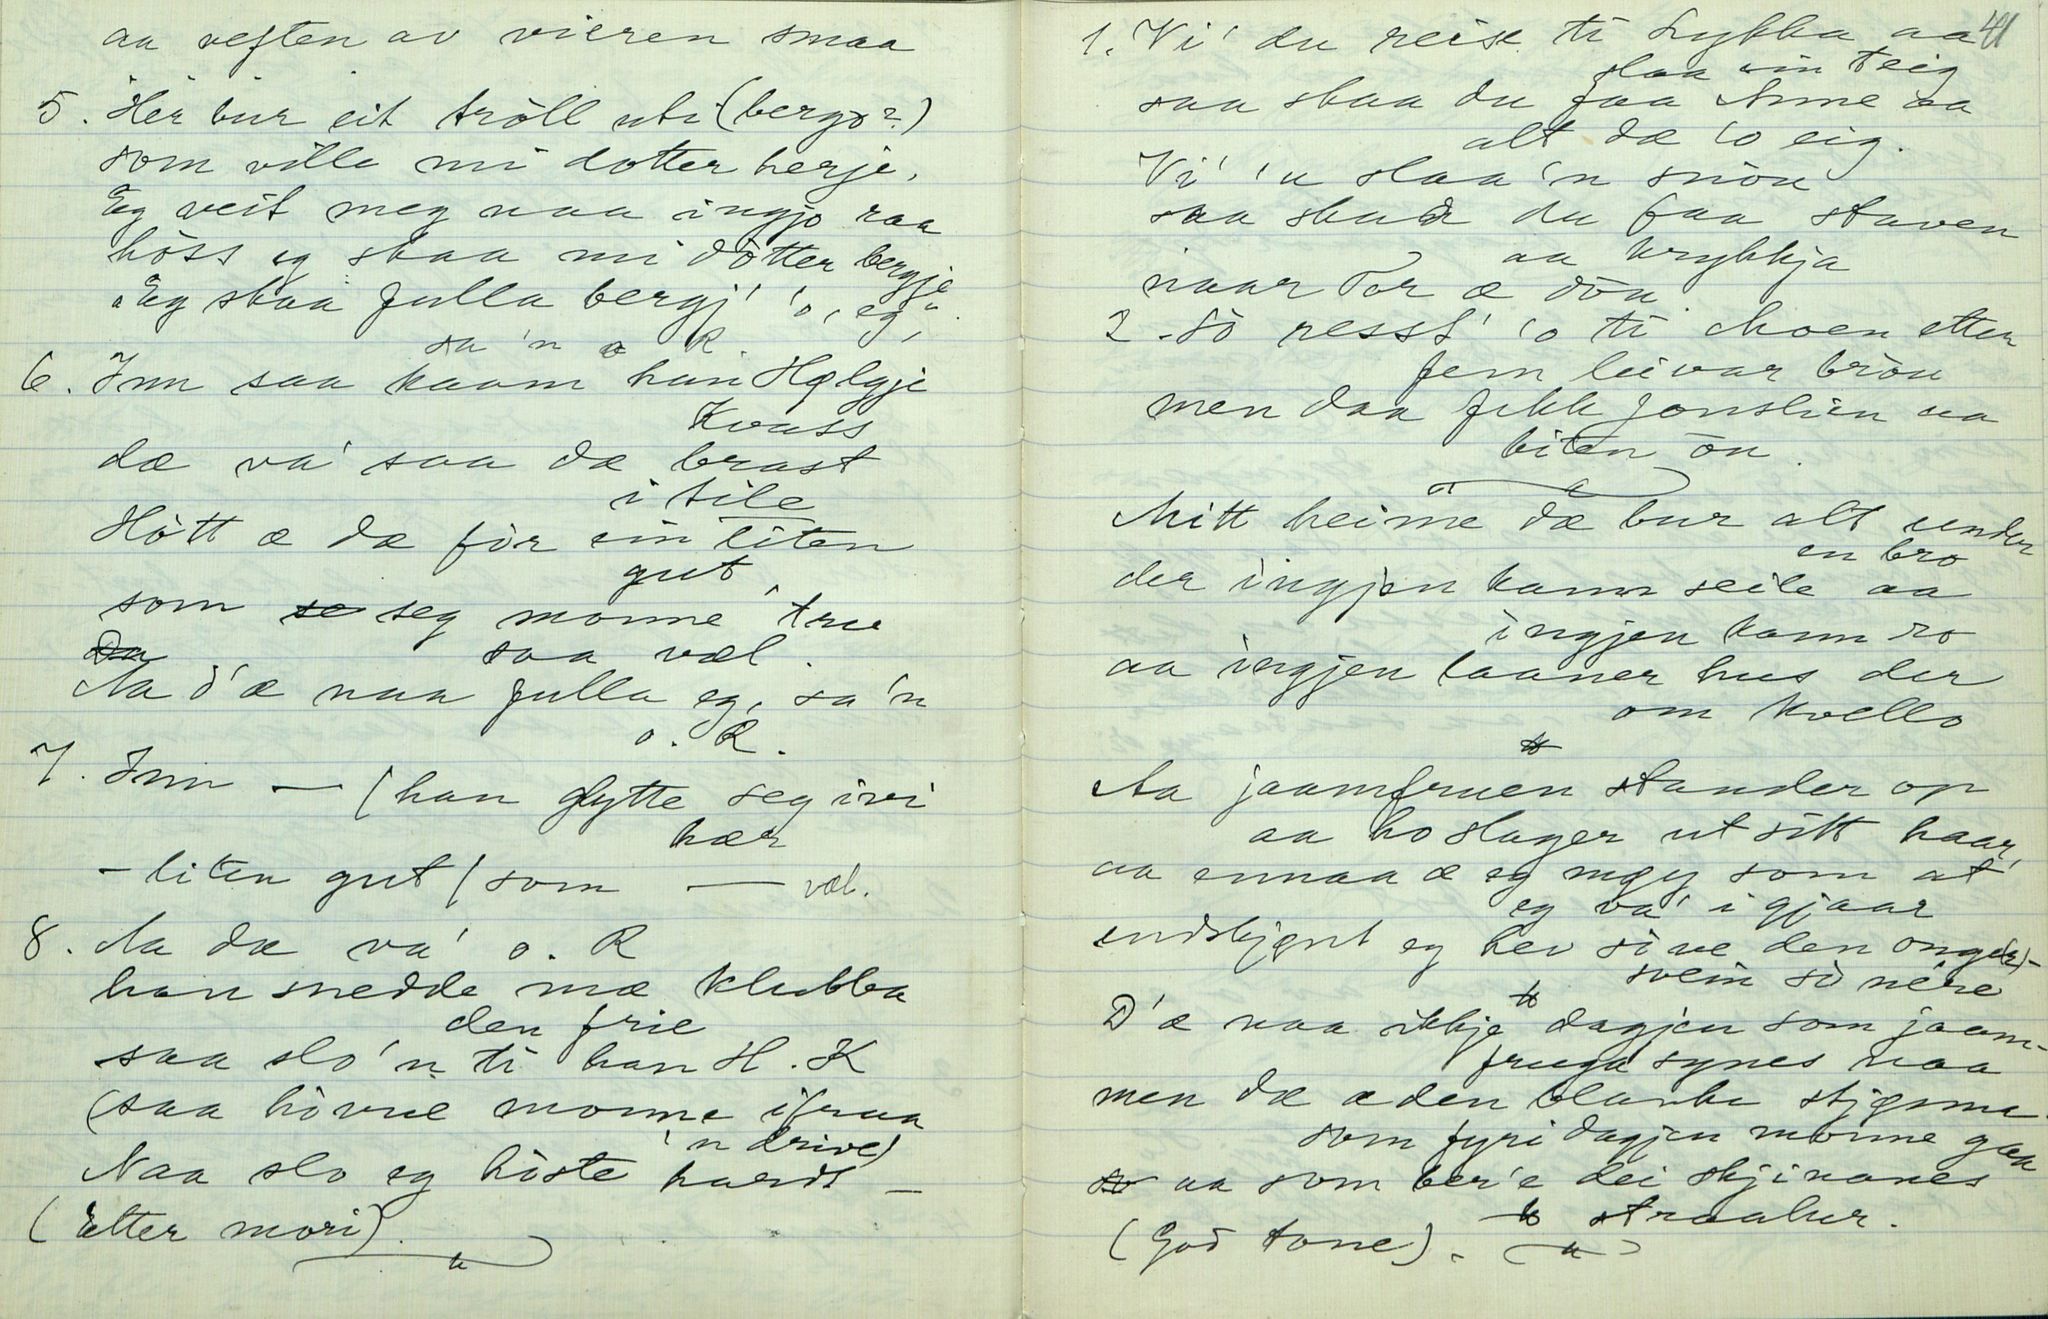 aa veften av vieren smaa
5. Her bur eit tròll uti (bergo?)
som ville mi dotter herje,
Eg veit meg naa ingjo raa
hòss eg skaa mi dòtter bergje
"Eg skaa fulla bergj' 'o, eg,"
sa 'n o R.
6. Inn saa kaam han Hølgje
Kvass
dæ va' saa dæ brast
i tile
Hòtt æ dæ fòr ein liten
gut
som seg monne true
saa væl.
Aa d'æ naa fulla eg, sa'n
o. R.
7. Inn — (han glytte seg ivi
hær
- liten gut / som — væl.
8. Aa dæ va' o. R
han snedde mæ klubba
den frie
saa slo'n ti han H. K
(saa hòvue monne ifraa
'n drive)
Naa slo eg hòste hardt —
(Etter mori).
41
1. Vi' du reise ti Lykkja aa
slaa ein teig
saa skaa du faa Anne aa
alt dæ 'o eig.
Vi' 'u slaa 'n snòu
saa skaa du faa staven
aa krykkja
naar Tor æ dòu
2. Sò resst' 'o ti Moen etter
fem leivar bròu
men daa fekk Jonslien aa
biten òu.
Mitt heime dæ bur alt under
en bro
der ingjen kann seile aa
ingjen kann ro
aa ingjen laaner hus der
om kvello
Aa jaamfruen stander op
aa ho slager ut sitt haar,
aa ennaa æ eg møy som at
eg va' i gjaar
endskjønt eg hev sòve den onge(r)-
svein sò nére
D'æ naa ikkje dagjen som jaam-
fruga synes naa
men dæ æ den blanke stjønna
som fyri dagjen monne gaa
aa som ber'e dei skjinanes
straalur.
(God tone).